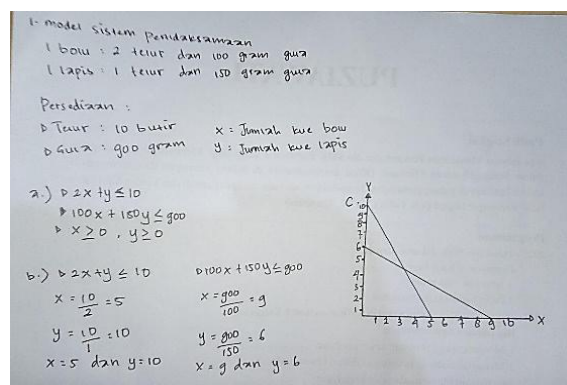 1. model sistem Penidaksamaan
1 bolu : 2 telur dan 100 gram gula
1 lapis : 1 telur dan 150 gram gula
Persediaan :
▷ Telur : 10 butir
x = Jumlah kue bolu
▷ Gula : 900 gram
y = Jumlah kue lapis
a.) ▷ 2x + y ≤ 10
▷ 100x + 150y ≤ 900
▷ x ≥ 0 , y ≥ 0
b.) ▷ 2x + y ≤ 10
x = 10/2 = 5
y = 10/1 = 10
x = 5 dan y = 10
▷ 100x + 150y ≤ 900
x = 900/100 = 9
y = 900/150 = 6
x = 9 dan y = 6
C.
Y
10
9
8
7
6
5
4
3
2
1
1 2 3 4 5 6 7 8 9 10 X